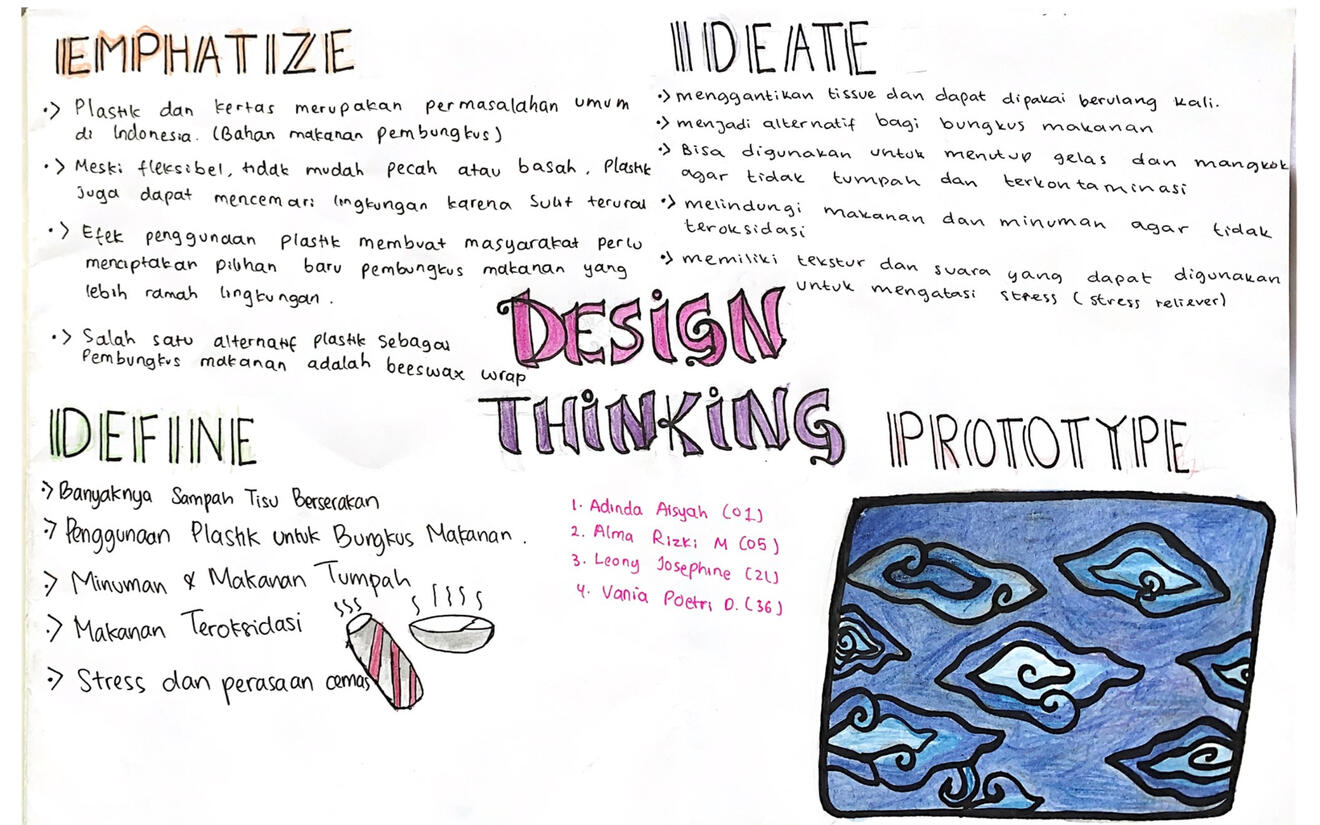 EMPHATIZE
•> Plastik dan kertas merupakan permasalahan umum
di Indonesia. (Bahan makanan pembungkus)
•> Meski fleksibel, tidak mudah pecah atau basah, Plastik
juga dapat mencemari lingkungan karena sulit terurai
•> Efek penggunaan plastik membuat masyarakat perlu
menciptakan pilihan baru pembungkus makanan yang
lebih ramah lingkungan.
•> Salah satu alternatif plastik sebagai
Pembungkus makanan adalah beeswax wrap
IDEATE
•> menggantikan tissue dan dapat dipakai berulang kali.
•> menjadi alternatif bagi bungkus makanan
•> Bisa digunakan untuk menutup gelas dan mangkok
agar tidak tumpah dan terkontaminasi
•> melindungi makanan dan minuman agar tidak
teroksidasi
•> memiliki tekstur dan suara yang dapat digunakan
untuk mengatasi stress (stress reliever)
DESIGN
THINKING
DEFINE
•> Banyaknya Sampah Tisu Berserakan
•> Penggunaan Plastik untuk Bungkus Makanan.
•> Minuman & Makanan Tumpah
•> Makanan Teroksidasi
•> Stress dan perasaan cemas
1. Adinda Aisyah (01)
2. Alma Rizki M (05)
3. Leony Josephine (21)
4. Vania Poetri D. (36)
PROTOTYPE